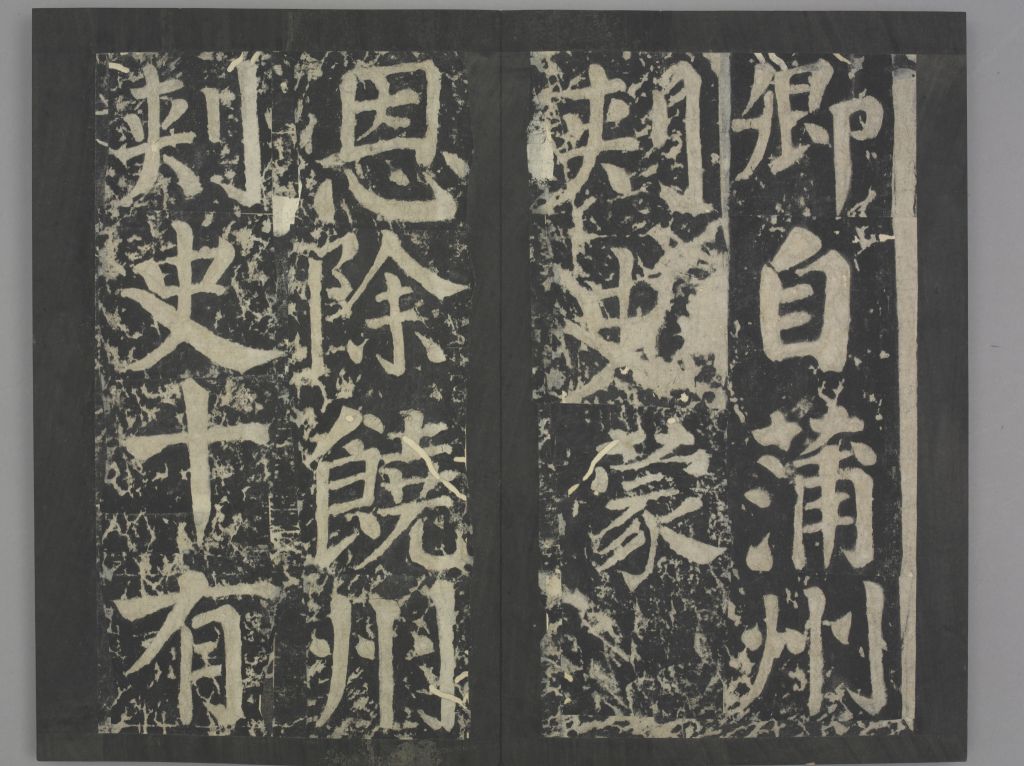 卿自蒲州
刾史蒙
恩除饒州
刾史十有